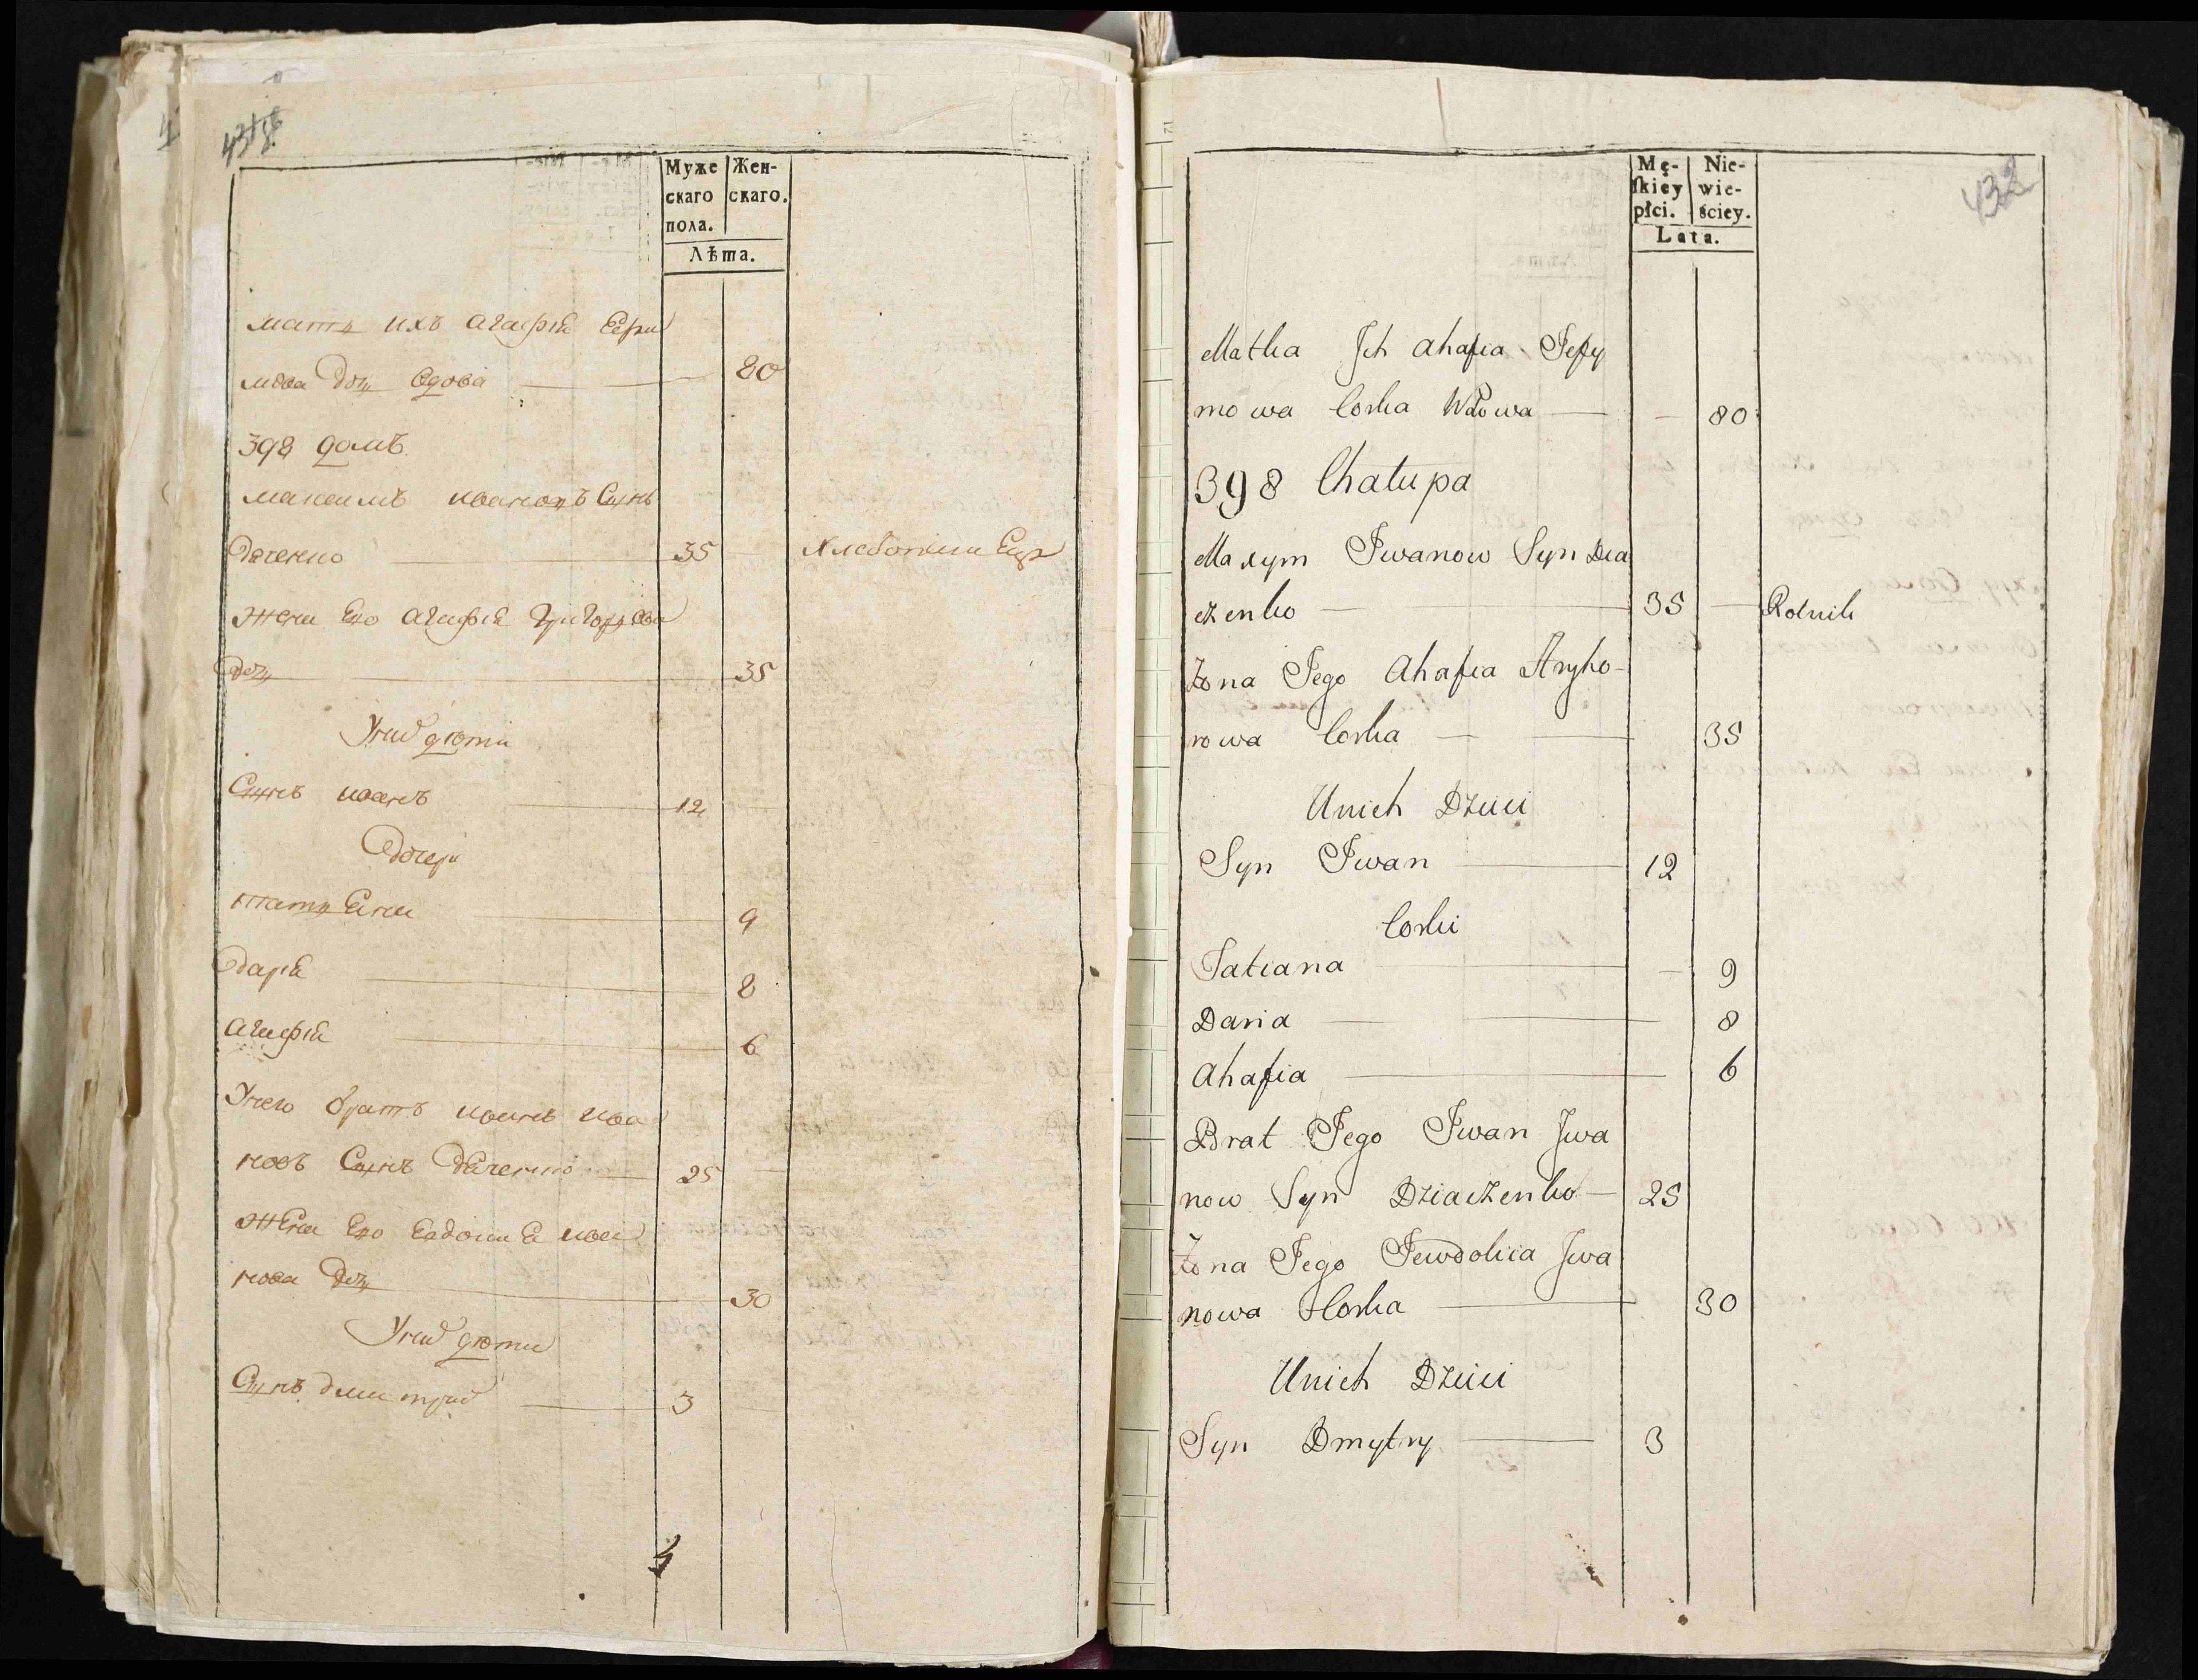 Муже
скаго
пола.
Жен-
скаго.
Лѣта.
мать ихъ агафія Ефи
мова дочь вдова — — 80
398 домъ
максимъ ивановъ Сынъ
дяченко — 35 — хлебопашецъ
жена Его агафія Григорова
дочь — 35
У них дѣти
Сынъ иванъ — 12
дочери
татьяна — 9
дарія — 8
агафія — 6
У него братъ иванъ ива
новъ Сынъ дяченко — 25 —
жена Его Евдокия ива
нова дочь — 30
У них дѣти
Сынъ дмитрий — 3
432
Mę-
skiey
płci.
Nie-
wie-
ściey.
Lata.
Matka Ich ahafia Jefy
mowa Corka Wdowa — — 80
398 Chałupa
Maxym Iwanow Syn Dia
czenko — 35 — Rolnik
Żona Jego Ahafia Hryho-
rowa Corka — — 35
Unich Dzieci
Syn Iwan — 12
Corki
Tatiana — — 9
Daria — — 8
Ahafia — 6
Brat Jego Iwan Iwa
now Syn Dziaczenko — 25
Żona Jego Jewdokia Iwa
nowa Corka — 30
Unich Dzieci
Syn Dmytry — 3